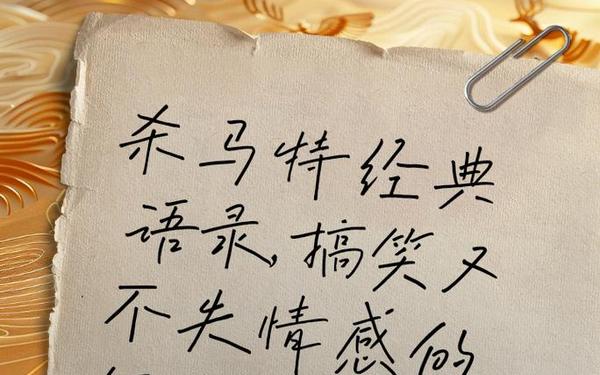 杀马特经典
语录,搞笑又
不失情感的